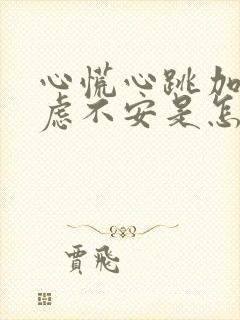 心慌心跳加
虑不安是怎
贾飛